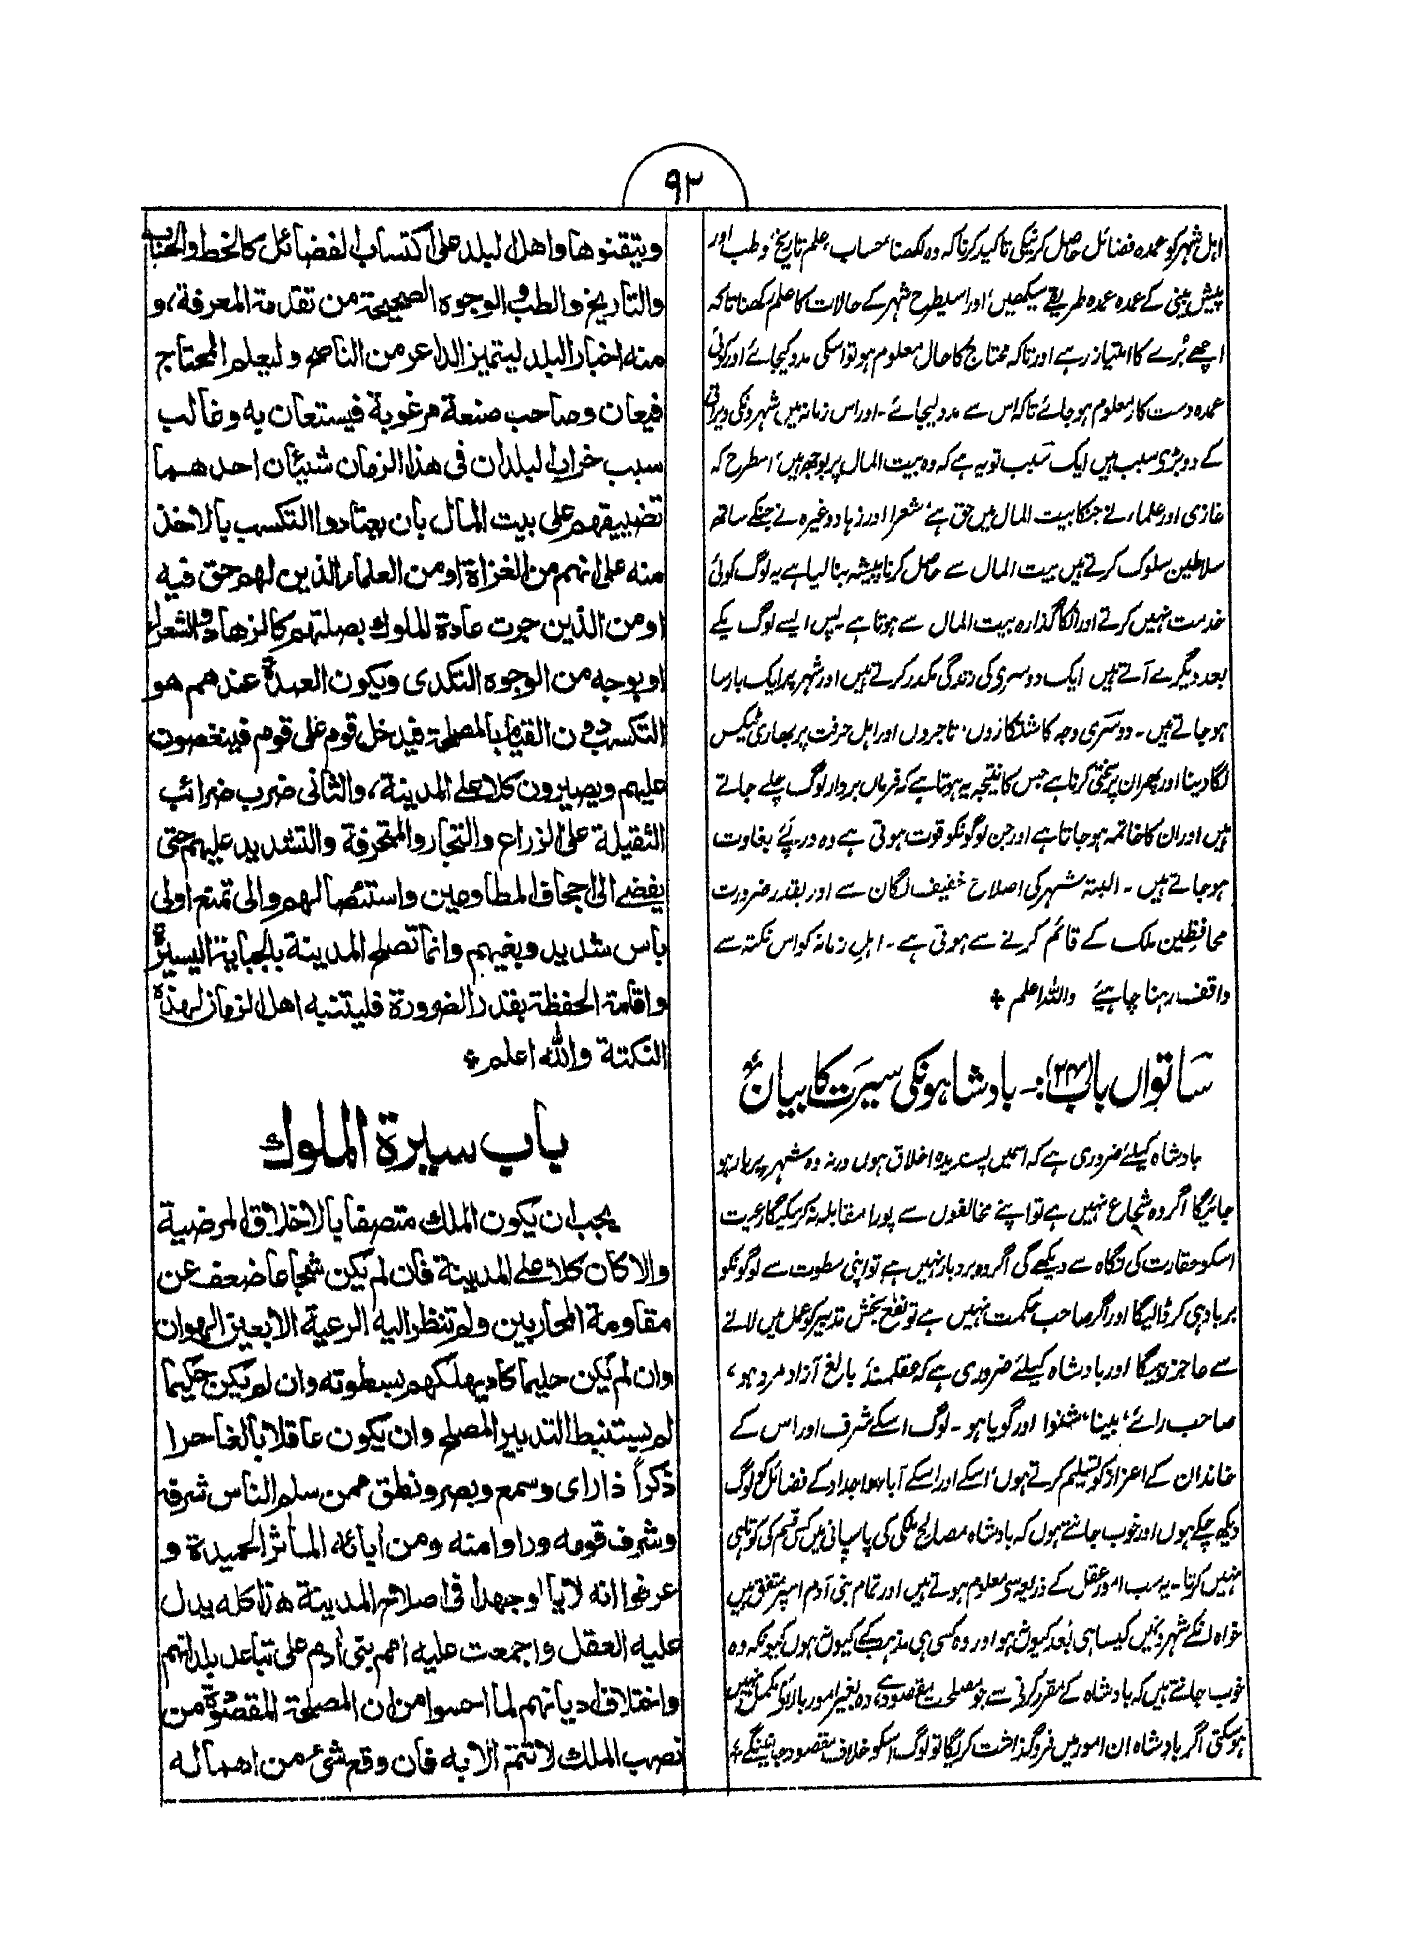 ۹۳
اہل شہر کو عمدہ فضائل حاصل کرنیکی تاکید کرنا کہ وہ لکھنا حساب، علم تاریخ، وطب اور
پیش بینی کے عمدہ عمدہ طریقے سیکھیں، اور اسیطرح شہر کے حالات کا علم رکھنا تاکہ
اچھے بُرے کا امتیاز رہے اور تاکہ محتاج کا حال معلوم ہو تو اسکی مدد کیجائے اور کوئی
عمدہ دست کار معلوم ہو جائے تاکہ اس سے مدد لیجائے۔ اور اس زمانہ میں شہرونکی ویرانی
کے دو بڑی سبب ہیں ایک سبب تو یہ ہے کہ وہ بیت المال پر بوجھ ہیں، اسطرح کہ
غازی اور علماء نے جنکا بیت المال میں حق ہے، شعرا اور زہاد وغیرہ نے جنکے ساتھ
سلاطین سلوک کرتے ہیں بیت المال سے حاصل کرنا پیشہ بنا لیا ہے یہ لوگ کوئی
خدمت نہیں کرتے اور انکا گذارہ بیت المال سے ہوتا ہے۔ پس ایسے لوگ یکے
بعد دیگرے آتے ہیں ایک دوسری کی زندگی مکدر کرتے ہیں اور شہر پر ایک بار سا
ہو جاتے ہیں۔ دوسری وجہ کاشتکاروں، تاجروں اور اہل حرفت پر بھاری ٹیکس
لگا دینا اور پھر ان پر سختی کرنا ہے جس کا نتیجہ یہ ہوتا ہے کہ فرماں بردار لوگ چلے جاتے
ہیں اور ان کا خاتمہ ہو جاتا ہے اور جن لوگونکو قوت ہوتی ہے وہ درپئے بغاوت
ہو جاتے ہیں۔ البتہ شہر کی اصلاح خفیف لگان سے اور بقدر ضرورت
محافظین ملک کے قائم کرنے سے ہوتی ہے۔ اہل زمانہ کو اس نکتہ سے
واقف رہنا چاہیئے واللہ اعلم ٭
ساتواں باب (۲۳):- بادشاہونکی سیرت کا بیان
بادشاہ کیلئے ضروری ہے کہ اسمیں پسندیدہ اخلاق ہوں ورنہ وہ شہر پر بار ہو
جائیگا اگر وہ شجاع نہیں ہے تو اپنے مخالفوں سے پورا مقابلہ نہ کر سکیگا رعیت
اسکو حقارت کی نگاہ سے دیکھے گی اگر وہ بردبار نہیں ہے تو اپنی سطوت سے لوگونکو
برباد ہی کر ڈالیگا اور اگر صاحب حکمت نہیں ہے تو نفع بخش تدبیر کو عمل میں لانے
سے عاجز رہیگا اور بادشاہ کیلئے ضروری ہے کہ عقلمند، بالغ آزاد مرد ہو،
صاحب رائے، بینا، شنوا اور گویا ہو۔ لوگ اسکے شرف اور اس کے
خاندان کے اعزاز کو تسلیم کرتے ہوں، اسکے اور اسکے آباء واجداد کے فضائل کو لوگ
دیکھ چکے ہوں اور خوب جانتے ہوں کہ بادشاہ مصالح ملکی کی پاسبانی میں کسی قسم کی کوتاہی
نہیں کرتا۔ یہ سب امور عقل کے ذریعہ سے معلوم ہوتے ہیں اور تمام بنی آدم اسپر متفق ہیں
خواہ انکے شہرونمیں کیسا ہی بُعد کیوں نہو اور وہ کسی ہی مذہب کے کیوں نہوں کیونکہ وہ
خوب جانتے ہیں کہ بادشاہ کے مقرر کرنے سے جو مصلحت مقصود ہے، وہ بغیر امور بالا کے مکمل نہیں
ہو سکتی اگر بادشاہ ان امور میں فروگذاشت کریگا تو لوگ اسکو خلاف مقصود جانینگے ٭
ويتقنوها واهل البلد على اكتساب الفضائل كالخط والحساب
والتاريخ والطب والوجوه الصحيحة من تقدمة المعرفة، و
منه اخبار البلد ليتميز الداعر من الناصح وليعلم المحتاج
فيعان وصاحب صنعة مرغوبة فيستعان به وغالب
سبب خراب البلدان فى هذا الزمان شيئان احدهما
تضييقهم على بيت المال بأن يعتادوا التكسب بالاخذ
منه على انهم من الغزاة او من العلماء الذين لهم حق فيه
او من الذين جرت عادة الملوك بصلتهم كالزهاد والشعراء
او بوجه من الوجوه التكدى ويكون العمدة عندهم هو
التكسب دون القيام بالمصلحة فيدخل قوم على قوم فينغصون
عليهم ويصيرون كلا على المدينة، والثانى ضرب ضرائب
الثقيلة على الزراع والتجار والمتحرفة والتشديد عليهم حتى
يفضى الى اجحاف المطاوعين واستئصالهم والى تمنع اولى
بأس شديد وبغيهم وانما تصلح المدينة بالجباية اليسيرة
واقامة الحفظة بقدر الضرورة فليتنبه اهل الزمان لهذه
النكتة والله اعلم ٭
باب سيرة الملوك
يجب ان يكون الملك متصفا بالاخلاق المرضية
والا كان كلا على المدينة فان لم يكن شجاعا ضعف عن
مقاومة المحاربين ولم تنظر اليه الرعية الا بعين الهوان
وان لم يكن حليما كاد يهلكهم بسطوته وان لم يكن حكيما
لم يستنبط التدبير المصلح وان يكون عاقلا بالغا حرا
ذكراً ذا راى وسمع وبصر ونطق ممن سلم الناس شرفه
وشرف قومه وراوا منه ومن آبائه المآثر الحميدة و
عرفوا انه لا يألو جهدا فى اصلاح المدينة هذا كله يدل
عليه العقل واجمعت عليه امم بنى آدم على تباعد بلدانهم
واختلاف اديانهم لما احسوا من ان المصلحة المقصودة من
نصب الملك لا تتم الا به فان وقع شئ من اهماله